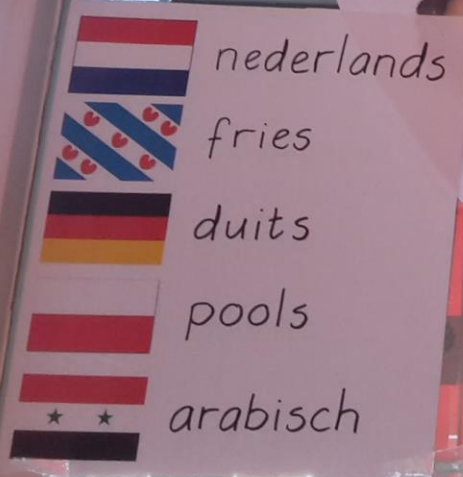 nederlands
fries
duits
pools
arabisch